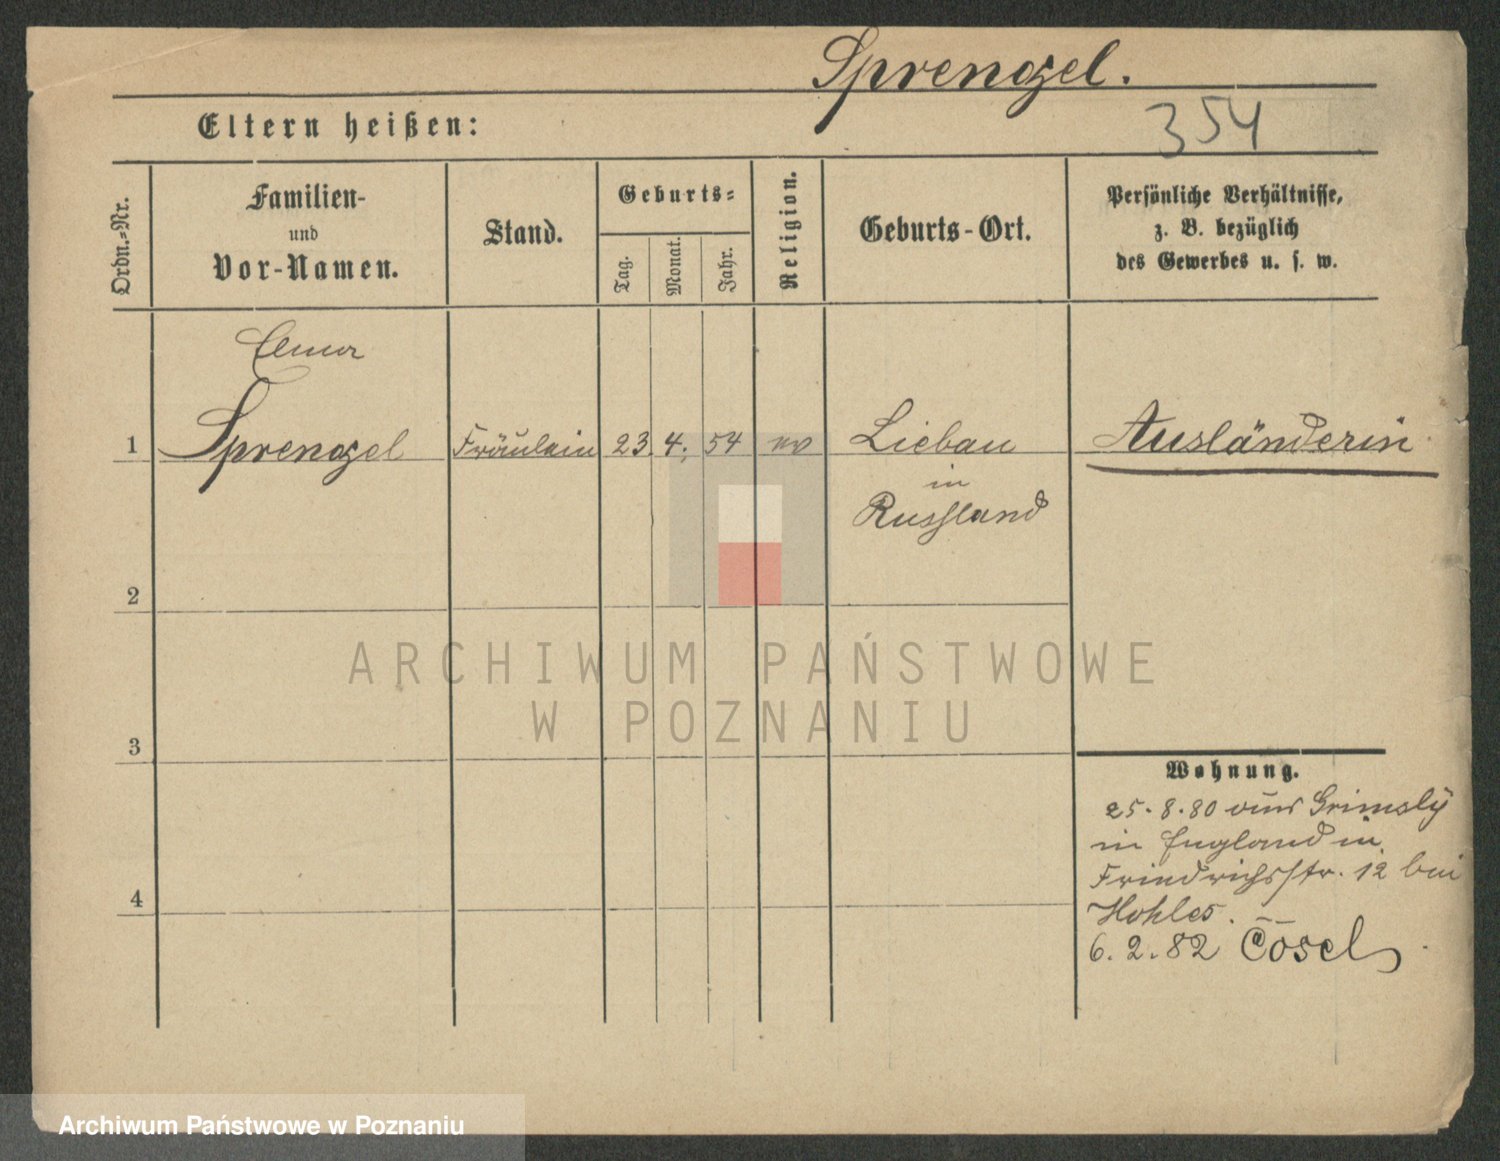 Sprengel.
354
Eltern heißen:
Ordn.=Nr.
Familien-
und
Vor-Namen.
Stand.
Geburts=
Tag.
Monat.
Jahr.
Religion.
Geburts-Ort.
Persönliche Verhältnisse,
z. B. bezüglich
des Gewerbes u. s. w.
1 Sprengel Fräulein 23. 4. 54 ev Liebau Ausländerin
in
Russland
2
3
4
Wohnung.
25.8.80 aus Grimsly
in England in
Friedrichsstr. 12 bei
Hohles.
6.2.82 Cosel
ARCHIWUM PAŃSTWOWE
W POZNANIU
Archiwum Państwowe w Poznaniu